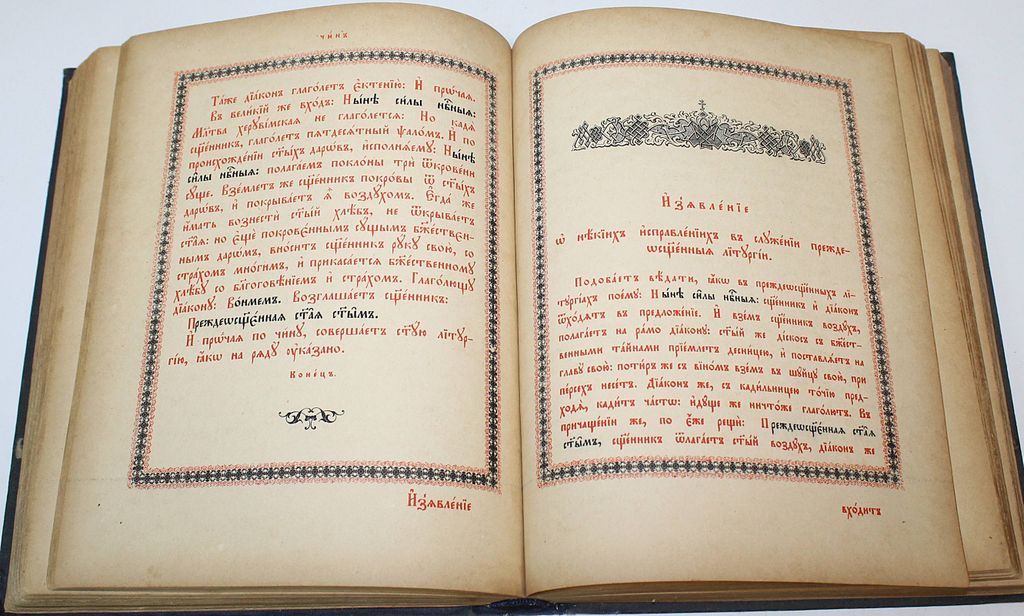 чи́нъ
Та́же дїа́конъ глаго́летъ є҆ктенїю̀: И҆ прѡ́чаѧ.
Въ вели́кїй же вхо́дъ: Ны́нѣ си́лы нбⷭ҇ныѧ:
Мл҃тва херꙋві́мскаѧ не глаго́летсѧ: Но кадѧ̀
сщ҃е́нникъ, глаго́летъ пѧтдесѧ́тный ѱало́мъ. И҆ по
происхожде́нїи ст҃ы́хъ дарѡ́въ, и҆сполнѧ́емꙋ: Ны́нѣ
си́лы нбⷭ҇ныѧ: полага́емъ покло́ны трѝ ѿкрове́ни
сꙋ́ще. Взе́млетъ же сщ҃е́нникъ покро́вы ѿ ст҃ы́хъ
дарѡ́въ, и҆ покрыва́етъ ѧ҆̀ во́здꙋхомъ. Є҆гда́ же
и҆́мать вознестѝ ст҃ы́й хлѣ́бъ, не ѿкрыва́етъ
ст҃а́ѧ: но є҆щѐ покрове́ннымъ сꙋ́щымъ бж҃е́ствєн-
нымъ дарѡ́мъ, вно́ситъ сщ҃е́нникъ рꙋ́кꙋ свою̀, со
стра́хомъ мно́гимъ, и҆ прикаса́етсѧ бж҃е́ственномꙋ
хлѣ́бꙋ со бл҃гоговѣ́нїемъ и҆ стра́хомъ. Глаго́лющꙋ
дїа́конꙋ: Во́нмемъ. Возглаша́етъ сщ҃е́нникъ:
Преждеѡсщ҃е́ннаѧ ст҃а̑ѧ ст҃ы̑мъ.
И҆ прѡ́чаѧ по чи́нꙋ, соверша́етъ ст҃ꙋ́ю лїтꙋр-
гі́ю, ꙗ҆́кѡ на рѧдꙋ̀ ᲂу҆ка́зано.
Коне́цъ.
И҆з̾ѧвле́нїе
И҆з̾ѧвле́нїе
ѡ҆ нѣ́кїихъ и҆справле́нїихъ въ слꙋже́нїи прежде-
ѡсщ҃е́нныѧ лїтꙋргі́и.
Подоба́етъ вѣ́дати, ꙗ҆́кѡ въ преждеѡсщ҃е́нныхъ лі-
тꙋргі́ахъ пое́мꙋ: Ны́нѣ си́лы нбⷭ҇ныѧ: сщ҃е́нникъ и҆ дїа́конъ
ѿхо́дѧтъ въ предложе́нїе. И҆ взе́мъ сщ҃е́нникъ во́здꙋхъ,
полага́етъ на ра́мо дїа́конꙋ: ст҃ы́й же ді́скосъ съ бж҃е́ст-
венными та́йнами прїе́млетъ десни́цею, и҆ поставлѧ́етъ на
главꙋ̀ свою̀: поти́ръ же съ вїно́мъ взе́мъ въ шꙋ́йцꙋ свою̀, при
пе́рсехъ несе́тъ. Дїа́конъ же, съ кади́льницею то́чїю пред-
ходѧ̀, кади́тъ ча́стѡ: и҆дꙋ́ще же ничто́же глаго́лютъ. Въ
причаще́нїи же, по є҆́же рещѝ: Преждеѡсщ҃е́ннаѧ ст҃а̑ѧ
ст҃ы̑мъ, сщ҃е́нникъ ѿлага́етъ ст҃ы́й во́здꙋхъ, дїа́конъ же
вхо́дитъ